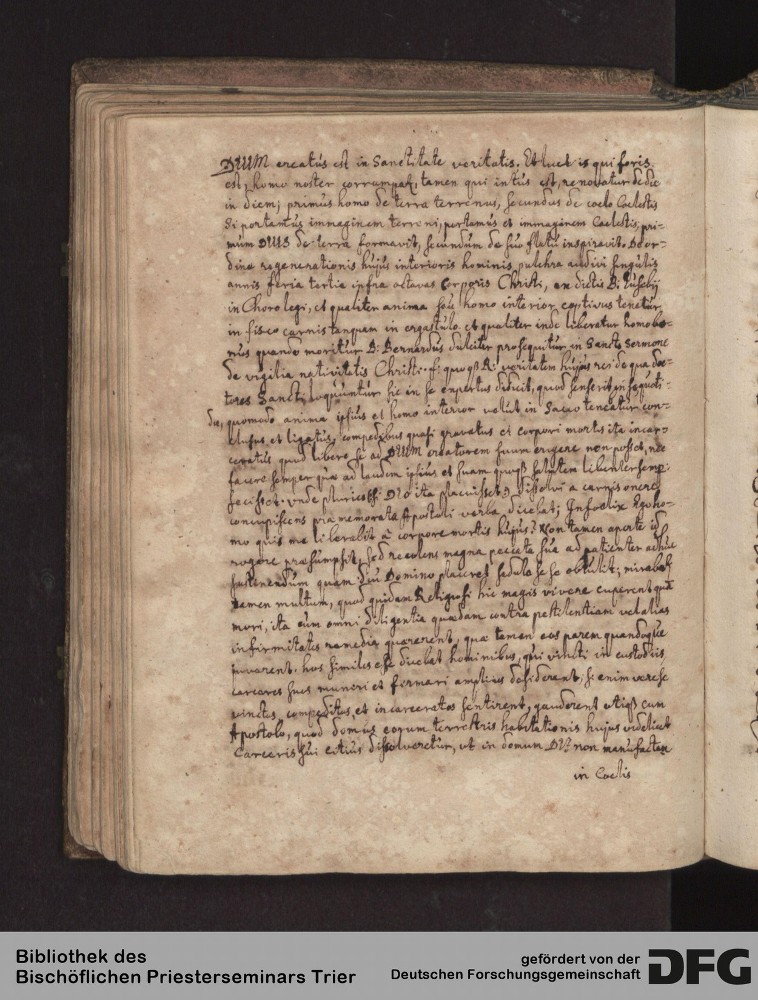 DEUM creatús est in Sanctitate veritatis. Et licet is qui foris
est homo noster corrumpat, tamen qui intús est, renovatur de die
in diem; primús homo de terra terrenus, secundus de coelo Coelestis
Si portamús immaginem terreni, portamus et immaginem Coelestis, pri-
múm DEUS de terra formavit, secundúm de súo flatú inspiravit. De or-
dine regenerationis hújús interioris hominis pulchra audivi singulis
annis feria tertia infra octavas Corporis Christi, ex dictis B. Eusebij
in Choro legi, et qualiter anima seú homo interior captivus tenetúr
in fisco carnis tanquam in ergastúlo et qualiter inde liberatur homo bo-
nús quando moritúr B: Bernardus dúlciter proseqúitúr in Sancto Sermone
de vigilia nativitatis Christi. veritatem hújús rei de qua doc-
tores Sancti loqúúntúr hic in se expertus didicit, quod
quomodo anima ipsiús et homo interior velút in Sacco teneatur con-
clúsus et ligatús, compedibus quasi gravatus et corpori mortis ita incar-
ceratús quod libere se ad DEUM creatorem suum erigere non posset, nec
facere semper quae ad laudem ipsius et suam salutem libenter
fecisset. unde ita placuisset, dissolvi a carnis onere
concupiscens praememorata Apostoli verba dicebat; Infoelix Ego ho-
mo quis me liberabit à corpore mortis hújús? Non tamen aperte id
rogare praesúmpsit, sed recolens magna peccata súa ad patienter adhuc
sústinendúm quam diú Domino placeret sedulo se se obtulit; mirabat
tamen multum, quod quidam Religiosi hic magis vivere cuperent quã
mori, ita cum omni diligentia quaedam contra pestilentiam vel alias
infirmitates remedia quaererent, quae tamen eos parem quandoque
júvarent. hos similes esse dicebat hominibus, qui vincti in custodiis
carceres suos muniri et firmari amplius desiderent. Si enim vere se
vinctos compeditos, et incarceratos sentirent, gauderent utiq cum
Apostolo, quod domus eorum terrestris habitationis hujus videlicet
Carceris súi citiús dissolveretúr, ut in domum DEI non manufactam
in Coelis
Bibliothek des
Bischöflichen Priesterseminars Trier
gefördert von der
Deutschen Forschungsgemeinschaft
DFG